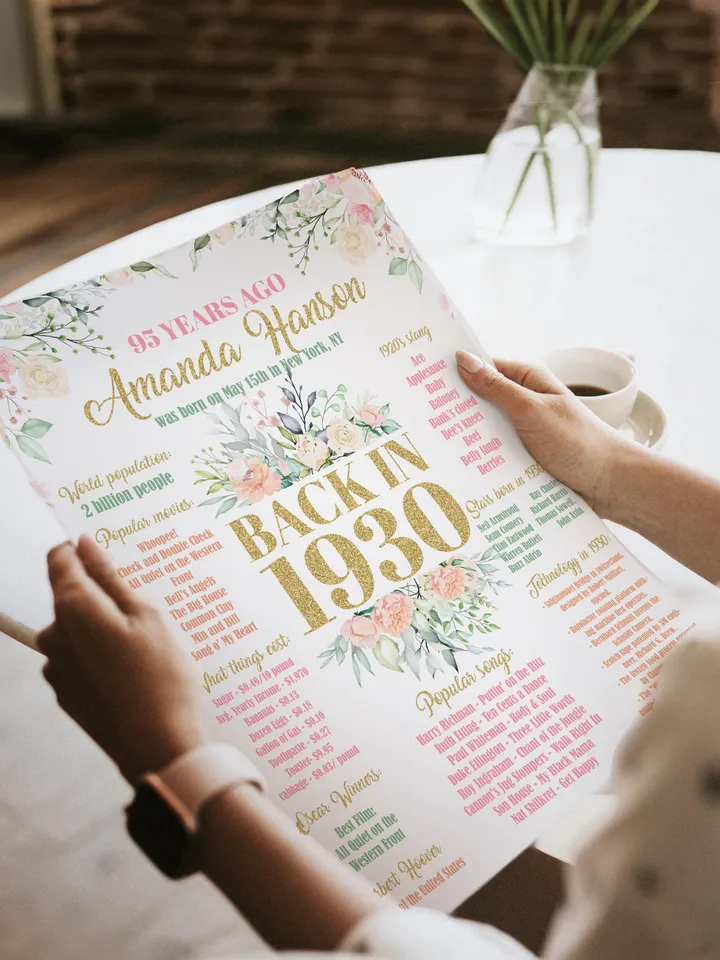 95 YEARS AGO
Amanda Hanson
was born on May 15th in New York, NY
World population:
2 billion people
Popular movies:
Whoopee!
Check and Double Check
All Quiet on the Western
Front
Hell's Angels
The Big House
Common Clay
Min and Bill
Song o' My Heart
What things cost:
Sugar - $0.49/10 pound
Avg. Yearly Income - $1,970
Bananas - $0.13
Dozen Eggs - $0.18
Gallon of Gas - $0.10
Toothpaste - $0.27
Toaster- $9.95
cabbage - $0.03/ pound
Oscar Winners:
Best Film:
All Quiet on the
Western Front
BACK IN
1930
1920's slang
Ace
Applesauce
Baby
Baloney
Bank's closed
Bee's knees
Beef
Belly laugh
Berries
Stars born in 1930:
Neil Armstrong
Sean Connery
Clint Eastwood
Warren Buffet
Buzz Aldrin
Ray Charles
Richard Harris
Thomas Sowell
John Astin
Technology in 1930:
Popular songs:
Harry Richman - Puttin' on the Ritz
Ruth Etting - Ten Cents a Dance
Paul Whiteman - Body & Soul
Duke Ellington - Three Little Words
Roy Ingraham - Chant of the Jungle
Cannon's Jug Stompers - Walk Right In
Son House - My Black Mama
Nat Shilkret - Get Happy
Hoover
of the United States